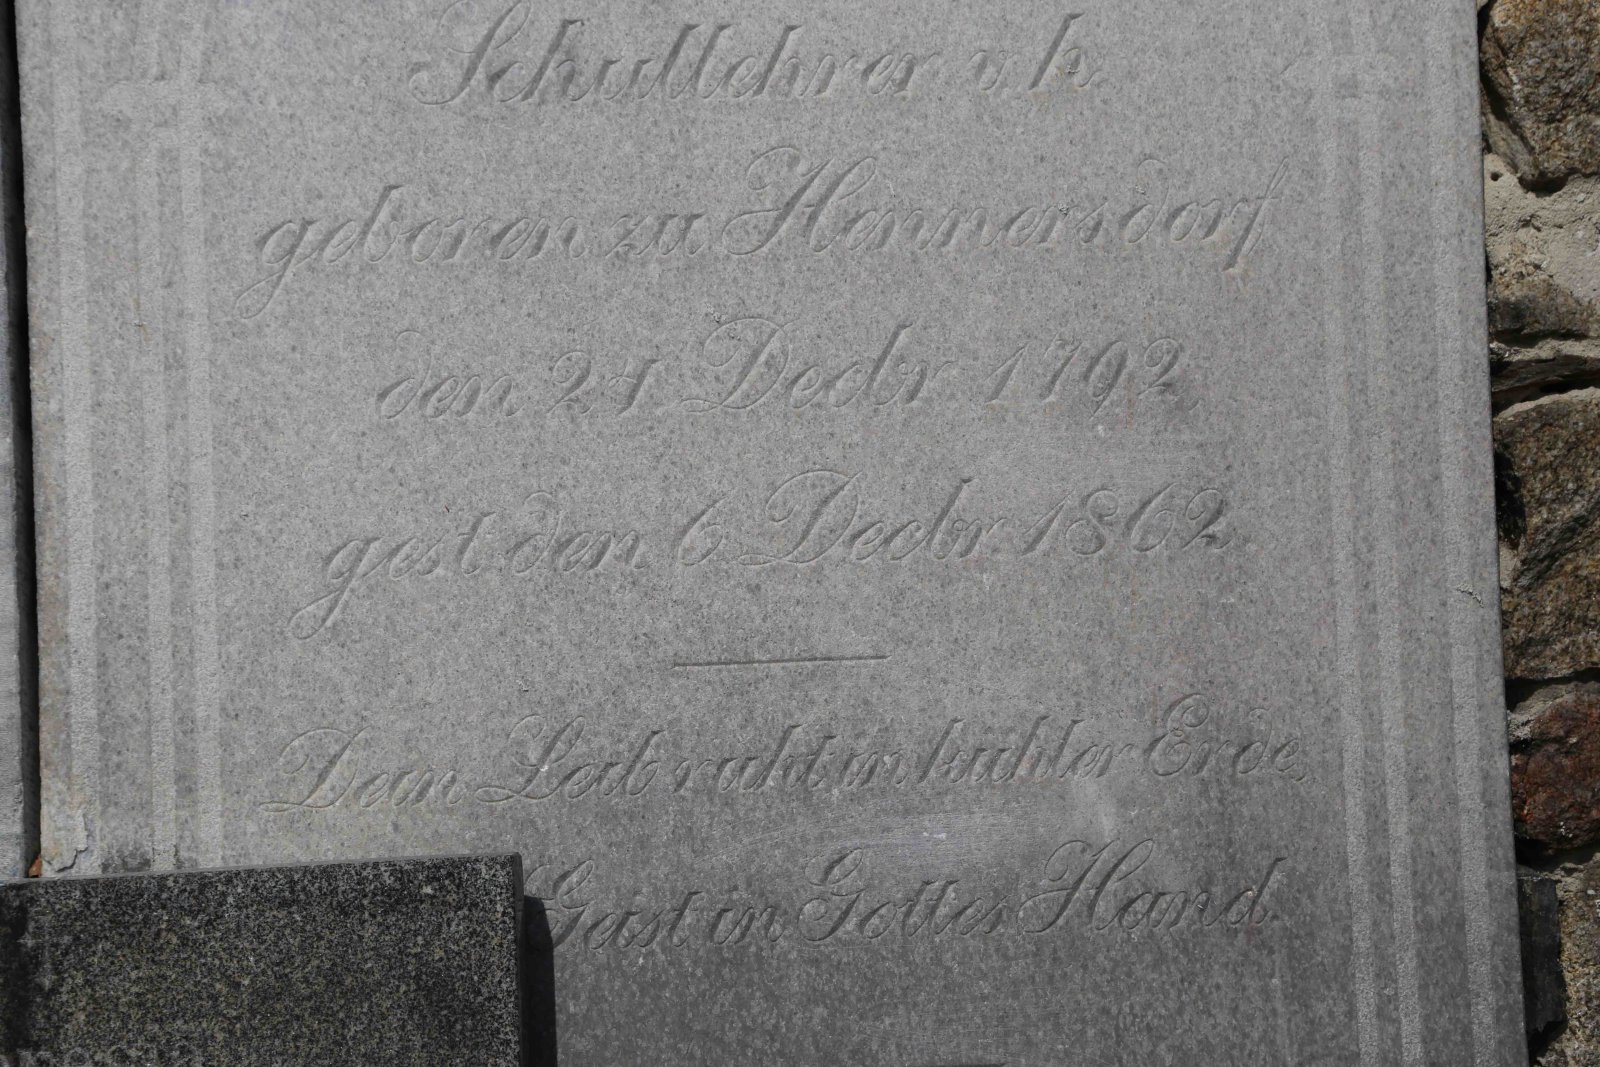 Schullehrer v. h.
geboren zu Hennersdorf
den 24 Decbr 1792
gest. den 6. Decbr. 1862
Dein Leib ruht in kühler Erde,
Geist in Gottes Hand